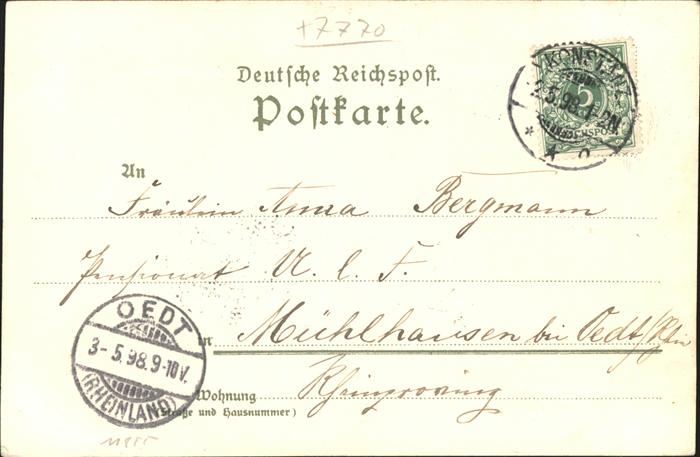 +7770
Deutsche Reichspost.
Postkarte.
KONSTANZ
2.5.98.1-2N.
5
REICHSPOST
An
Fräulein Anna Bergmann
Pensionat U. l. F.
in Mühlhausen bei Oedt/Rhn
Rheinprovinz
Wohnung
(Straße und Hausnummer)
OEDT
3-5.98.9-10V.
(RHEINLAND)